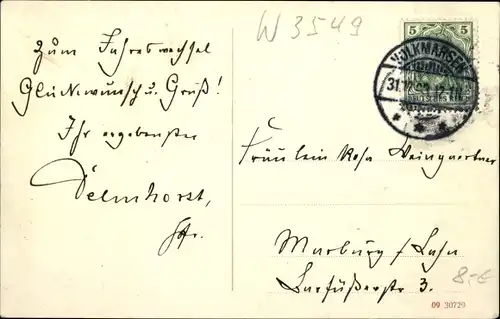 W 3549
Zum Jahreswechsel
Glückwunsch u. Gruß!
Ihr ergebenster
Delmhorst,
5
5
VOLKMARSEN
31.12.09.12-1N.
Fräulein Rosa Weingaertner
Marburg / Lahn
Barfüßerstr 3.
8.-€
09 30729